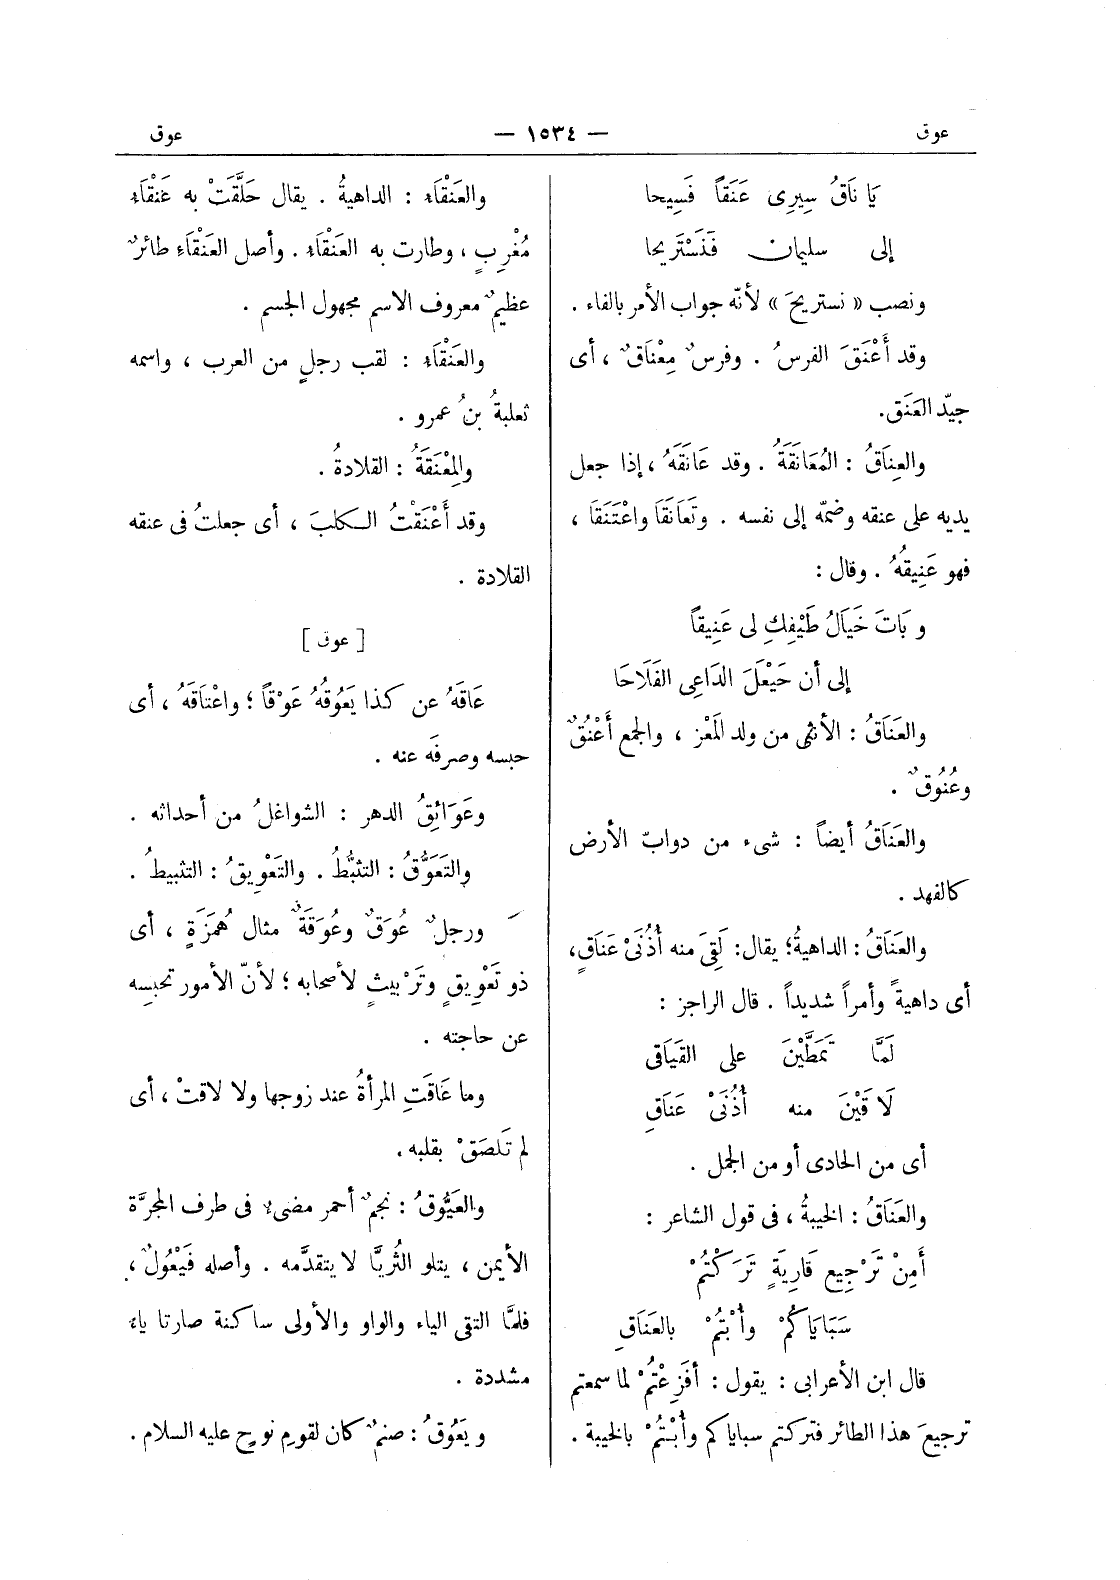 عوق — ١٥٣٤ — عوق
يَا نَاقُ سِيرِى عَنَقاً فَسِيحا
إلى سليمان فَنَسْتَرِيحا
ونصب « نستريحَ » لأنّه جواب الأمر بالفاء .
وقد أَعْنَقَ الفرسُ . وفرسٌ مِعْنَاقٌ ، أى
جيّد العَنَق.
والعِنَاقُ : المُعَانَقَةُ . وقد عَانَقَهُ ، إذا جعل
يديه على عنقه وضمّه إلى نفسه . وتَعَانَقَا واعْتَنَقَا ،
فهو عَنِيقُهُ . وقال :
وبَاتَ خَيَالُ طَيْفِكِ لى عَنِيقاً
إلى أن حَيْعَلَ الدَاعِى الفَلَاحَا
والعَنَاقُ : الأنثى من ولد المَعْز ، والجمع أَعْنُقٌ
وعُنُوقٌ .
والعَنَاقُ أيضاً : شىء من دوابّ الأرض
كالفهد .
والعَنَاقُ : الداهيةُ؛ يقال: لَقِىَ منه أُذُنَىْ عَنَاقٍ،
أى داهيةً وأمراً شديداً . قال الراجز :
لَمَّا تَمَطَّيْنَ على القَيَاقى
لَاقَيْنَ منه أُذُنَىْ عَنَاقِ
أى من الحادى أو من الجمل .
والعَنَاقُ : الخيبةُ ، فى قول الشاعر :
أَمِنْ تَرْجِيعِ قَارِيَةٍ تَرَكْتُمْ
سَبَايَاكُمْ وأُبْتُمْ بالعَنَاقِ
قال ابن الأعرابى : يقول : أفَزِعْتُمْ لما سمعتم
ترجيعَ هذا الطائر فتركتم سباياكم وأُبْتُمْ بالخيبة .
والعَنْقَاء : الداهيةُ . يقال حَلَّقَتْ به عَنْقَاء
مُغْرِبٍ ، وطارت به العَنْقَاء . وأصل العَنْقَاءِ طائرٌ
عظيمٌ معروف الاسم مجهول الجسم .
والعَنْقَاء : لقب رجلٍ من العرب ، واسمه
ثعلبةُ بنُ عمرو .
والمِعْنَقَةُ : القلادةُ .
وقد أَعْنَقْتُ الكلبَ ، أى جعلتُ فى عنقه
القلادة .
[ عوق ]
عَاقَهُ عن كذا يَعُوقُهُ عَوْقاً ؛ واعْتَاقَهُ ، أى
حبسه وصرفَه عنه .
وعَوَائِقُ الدهر : الشواغلُ من أحداثه .
والتَعَوُّقُ : التثبُّطُ . والتَعْوِيقُ : التثبيطُ .
ورجلٌ عُوَقٌ وعُوَقَةٌ مثال هُمَزَةٍ ، أى
ذو تَعْوِيقٍ وتَرْبيثٍ لأصحابه ؛ لأنّ الأمور تحبِسه
عن حاجته .
وما عَاقَتِ المرأةُ عند زوجها ولا لاقتْ ، أى
لم تَلصَقْ بقلبه .
والعَيُّوقُ : نجمٌ أحمر مضىء فى طرف المجرَّة
الأيمن ، يتلو الثُريَّا لا يتقدَّمه . وأصله فَيْعُولٌ ،
فلمَّا التقى الياء والواو والأولى ساكنة صارتا ياء
مشددة .
ويَعُوقُ : صنمٌ كان لقومِ نوحٍ عليه السلام .